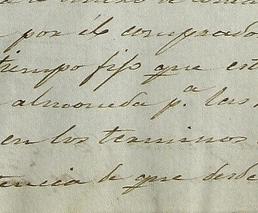 por el comprado
tiempo fijo que est
almoneda p.a las
en los terminos
tencia de que desde